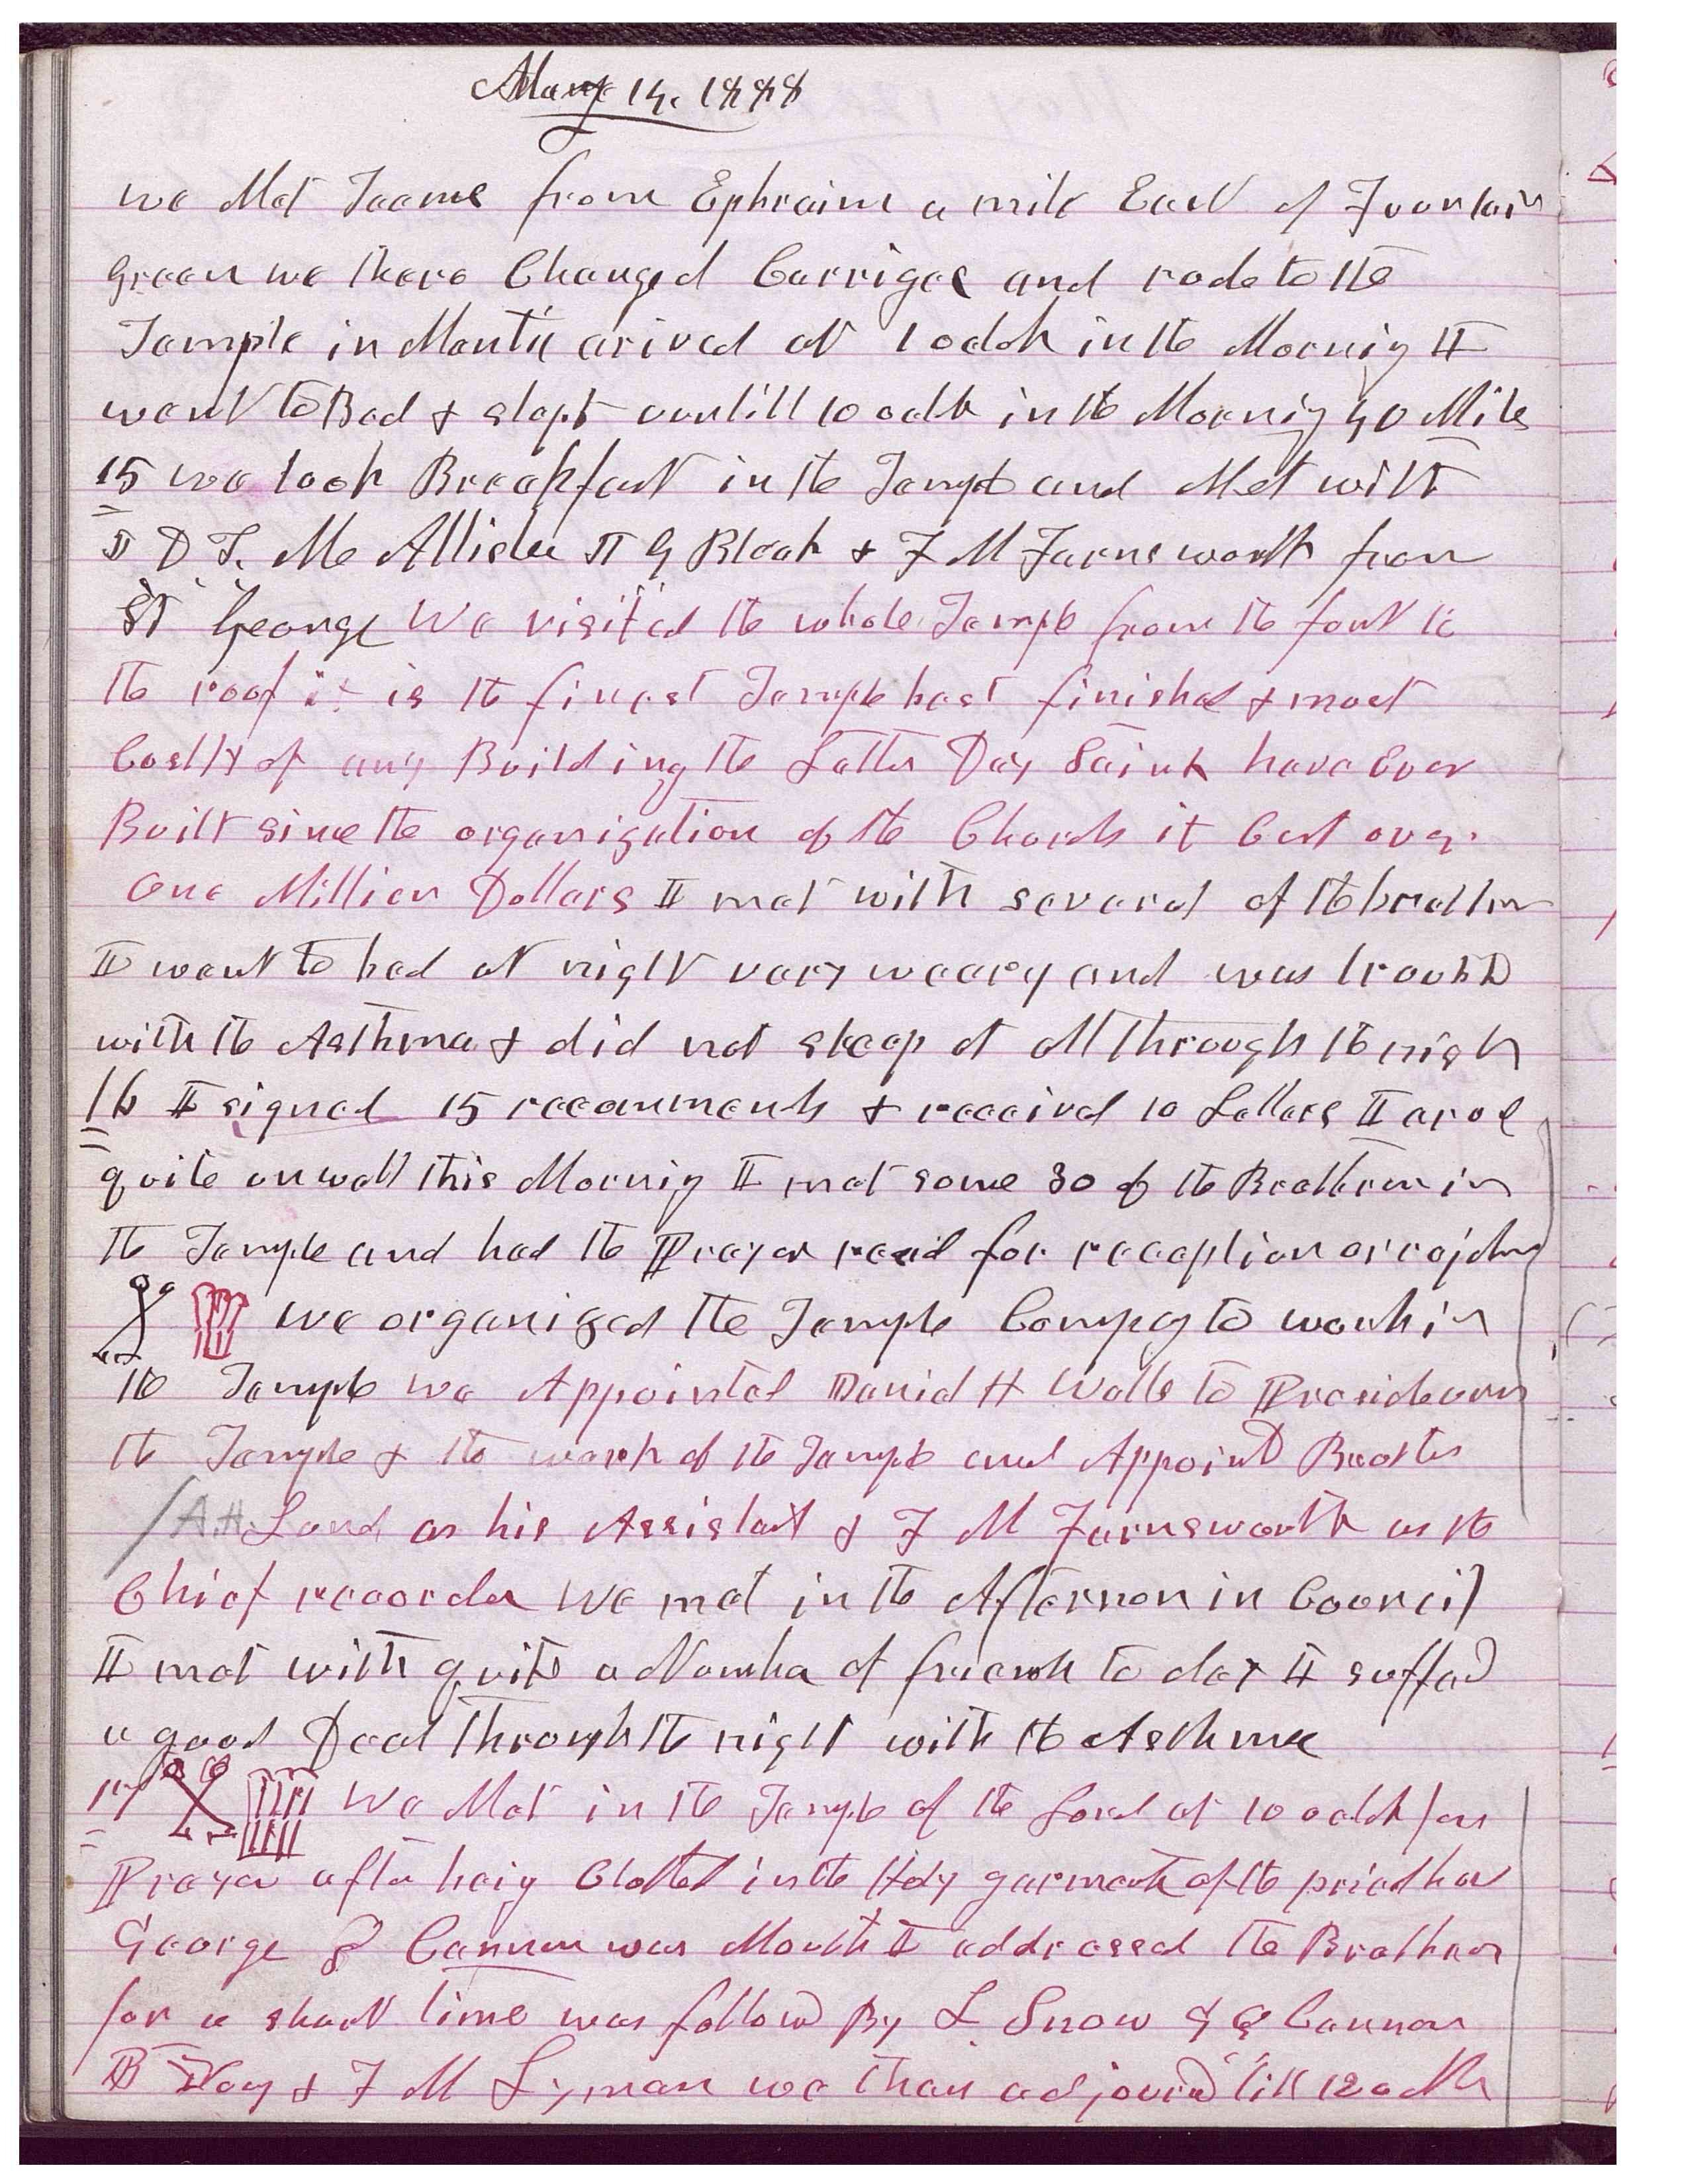 May 14. 1888
we Met Teams from Ephraim a mile East of Fountain
green we there Changed Carriges and rode to the
Temple in Manti arived at 1 oclok in the Morning I
went to Bed & slept untill 10 oclk in the Mornig 40 Miles
15 we took Breakfast in the Templ and Met with
J D T. Mc Allister J G Bleak & F M Farnsworth from
St George We visited the whole Temple from the font to
the roof it is the finest Temple best finished & most
Costly of any Building the Latter Day Saints have Ever
Built since the organization of the Church it Cost over
one Million Dollars I met with several of the brethren
I went to bed at night very weary and was troubld
with the Asthma & did not sleep at all through the night
16 I signed 15 recommends & received 10 Letters I arose
quite unwell this Mornig I met some 30 of the Brethren in
the Temple and had the Prayer read for reception or rejctin
We organized the Temple Compay to work in
the Temple we Appointed Daniel H Wells to Preside over
the Temple & the work of the Temple and Appointd Brother
/A.H. Lund as his Assistat & F M Farnsworth as the
Chief recorder We met in the Afternon in Council
I met with quite a Number of friends to day I suffed
a good Deal through the night with the Asthma
17 We Met in the Temple of the Lord at 10 oclok for
Prayer after beig Clothed in the Holy garments of the priesthood
George Q Cannon was Mouth I addressed the Brethren
for a short time was followd By L Snow G Q Cannon
B Yong & F M Lyman we then adjournd till 12 oclk